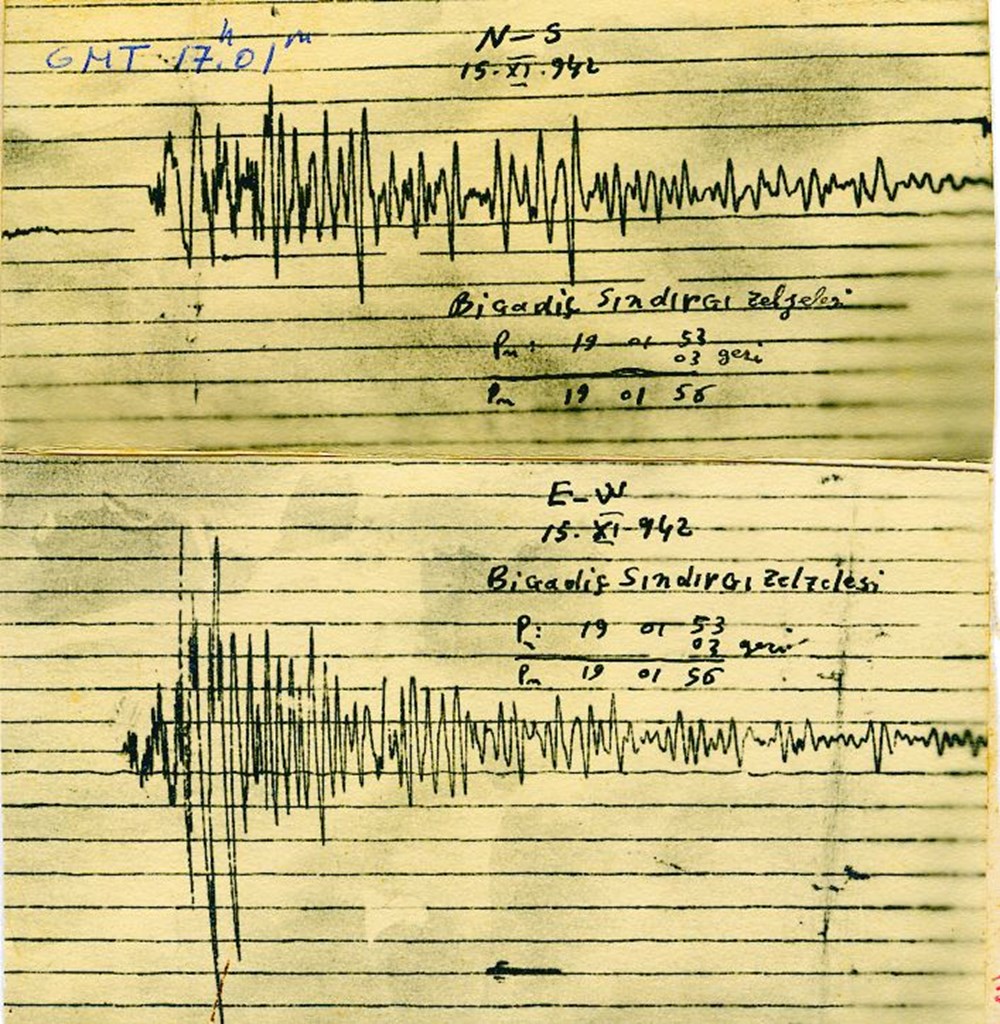 GMT 17h.01m
N-S
15.XI.942
Bigadiç Sındırgı zelzelesi
Pn: 19 01 53
03 geri
Pn 19 01 56
E-W
15.XI.942
Bigadiç Sındırgı zelzelesi
Pn: 19 01 53
03 geri
Pn 19 01 56